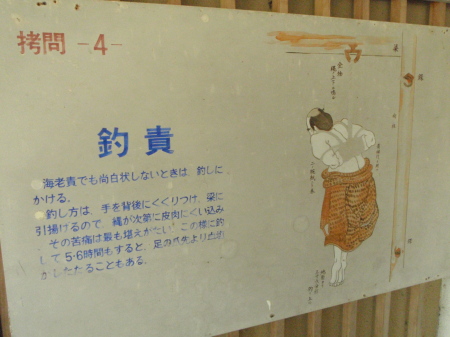 拷問 -4-
釣責
海老責でも尚白状しないときは 釣しに
かける。
釣し方は、手を背後にくくりつけ、梁に
引揚げるので 縄が次第に皮肉にくい込み
その苦痛は最も堪えがたい。この様に釣
して5·6時間もすると、足の爪先より血が
したたることもある。